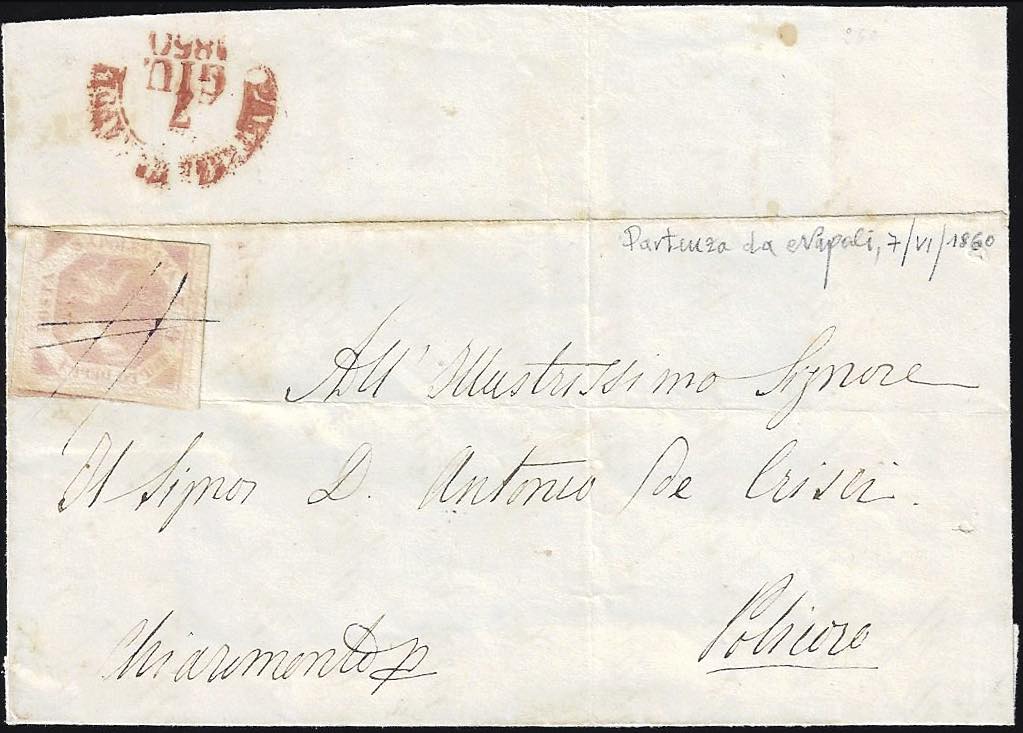 7
GIU.
1860
Partenza da Napoli, 7/VI/1860
All' Illustrissimo Signore
Il Signor D. Antonio De Crisci.
Chiaromonte p